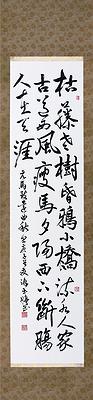 枯藤老樹昏鴉小橋流水人家
古道西風瘦馬夕陽西下斷腸
人在天涯
元馬致遠